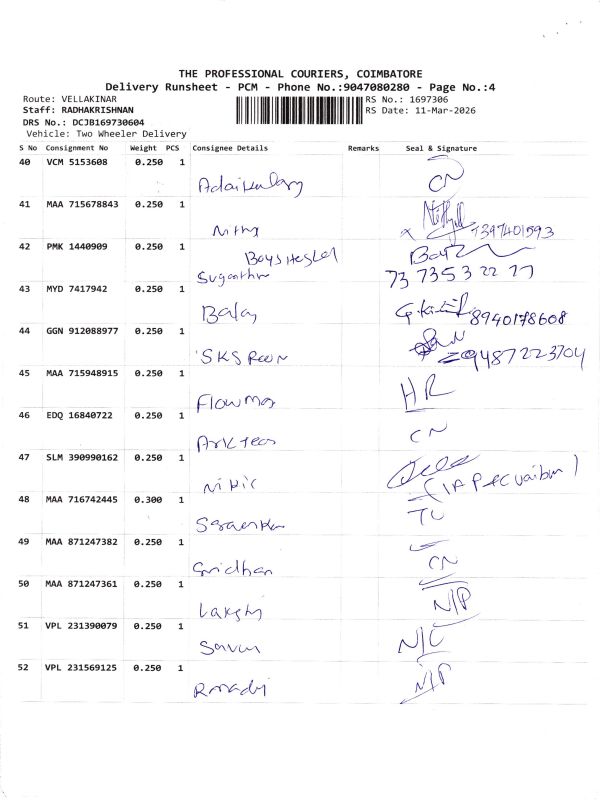 THE PROFESSIONAL COURIERS, COIMBATORE
Delivery Runsheet - PCM - Phone No.:9047080280 - Page No.:4
Route: VELLAKINAR
RS No.: 1697306
Staff: RADHAKRISHNAN
RS Date: 11-Mar-2026
DRS No.: DCJB169730604
Vehicle: Two Wheeler Delivery
S No Consignment No Weight PCS Consignee Details Remarks Seal & Signature
40 VCM 5153608 0.250 1
CN
41 MAA 715678843 0.250 1
7397401593
42 PMK 1440909 0.250 1
73 7353 22 77
43 MYD 7417942 0.250 1
Balaj 8940178608
44 GGN 912088977 0.250 1
SKS 9487223704
45 MAA 715948915 0.250 1
HR
46 EDQ 16840722 0.250 1
CN
47 SLM 390990162 0.250 1
48 MAA 716742445 0.300 1
49 MAA 871247382 0.250 1
Sridhar CN
50 MAA 871247361 0.250 1
N/P
51 VPL 231390079 0.250 1
N/C
52 VPL 231569125 0.250 1
N/P